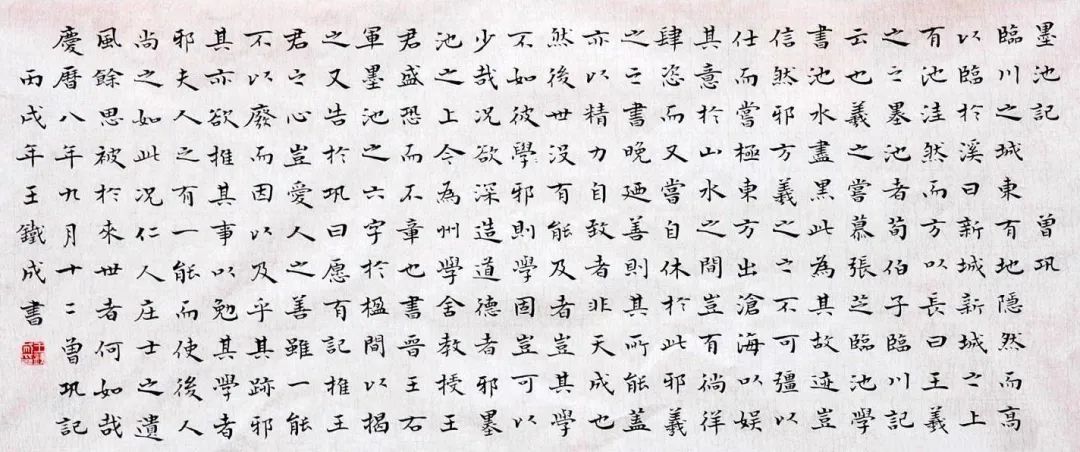 墨池記 曾巩
臨川之城東有地隐然而高
以臨於溪曰新城新城之上
有池洼然而方以長曰王羲
之之墨池者荀伯子臨川記
云也羲之嘗慕張芝臨池學
書池水盡黑此為其故迹豈
信然邪方羲之之不可彊以
仕而嘗極東方出滄海以娱
其意於山水之間豈有徜徉
肆恣而又嘗自休於此邪羲
之之書晚廼善則其所能蓋
亦以精力自致者非天成也
然後世没有能及者豈其學
不如彼學邪則學固豈可以
少哉况欲深造道德者邪墨
池之上今為州學舍教授王
君盛恐而不章也書晋王右
軍墨池之六字於楹間以揭
之又告於巩曰愿有記推王
君之心豈愛人之善雖一能
不以廢而因以及乎其跡邪
其亦欲推其事以勉其學者
邪夫人之有一能而使後人
尚之如此况仁人庄士之遺
風餘思被於來世者何如哉
慶曆八年九月十二曾巩記
丙戌年王鐵成書